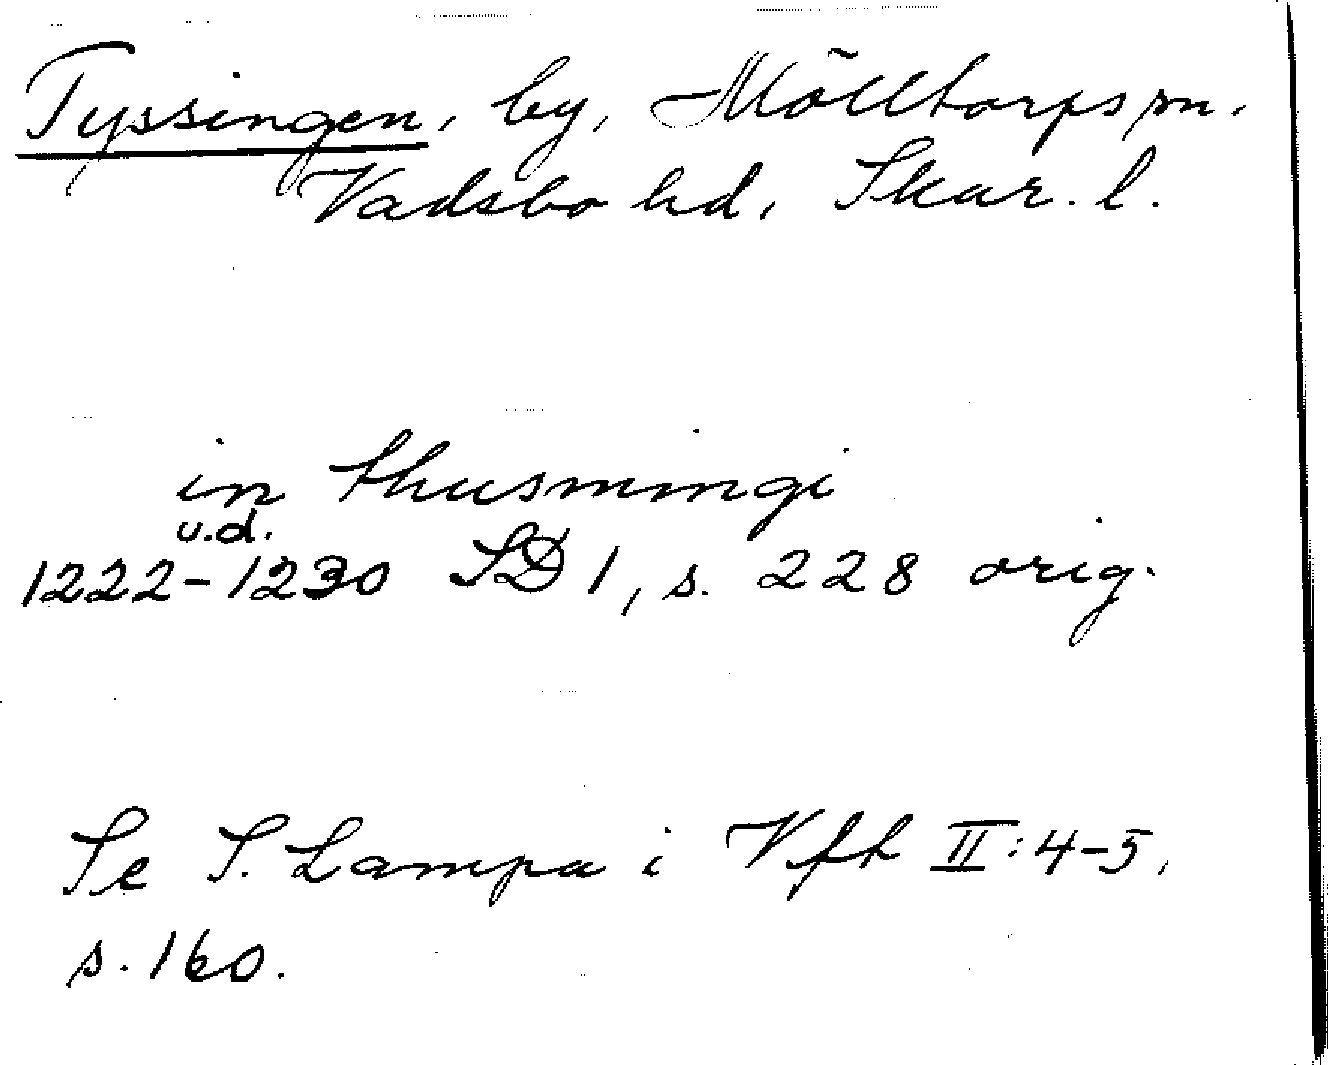 Tyssingen, by, Mölltorps sn.
Vadsbo hd, Skar. l.
in thusmingi
u.d.
1222-1230 SD 1, s. 228 orig.
Se S. Lampa i Vfh II:4-5,
s. 160.